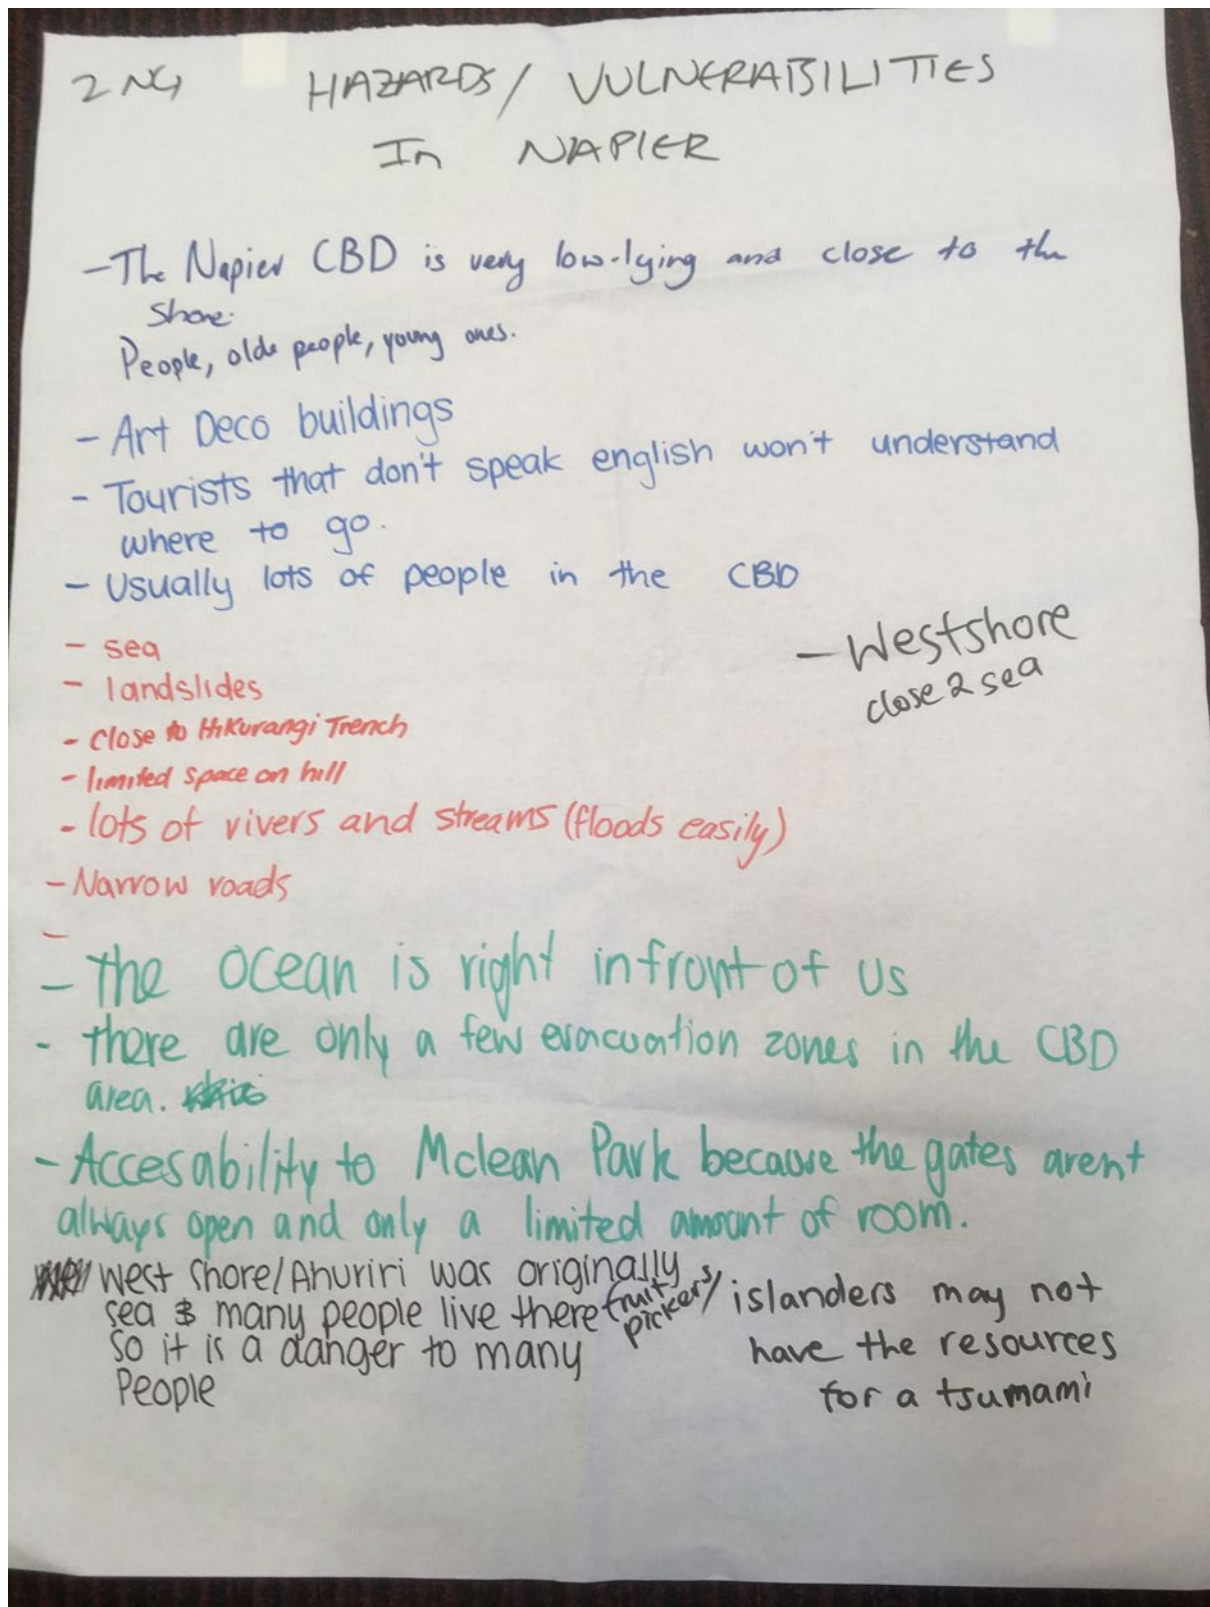 2NG HAZARDS/ VULNERABILITIES
In NAPIER
- The Napier CBD is very low-lying and close to the
shore.
People, olde people, young ones.
- Art Deco buildings
- Tourists that don't speak english won't understand
where to go.
- Usually lots of people in the CBD
- sea
- landslides
- close to HiKurangi Trench
- limited space on hill
- lots of rivers and streams (floods easily)
- Narrow roads
-
- Westshore
close 2 sea
- the ocean is right infront of us
- there are only a few evacuation zones in the CBD
area.
- Accesability to Mclean Park because the gates arent
always open and only a limited amount of room.
West Shore/Ahuriri was originally
sea & many people live there
so it is a danger to many
People
fruit
pickers/ islanders may not
have the resources
for a tsumami